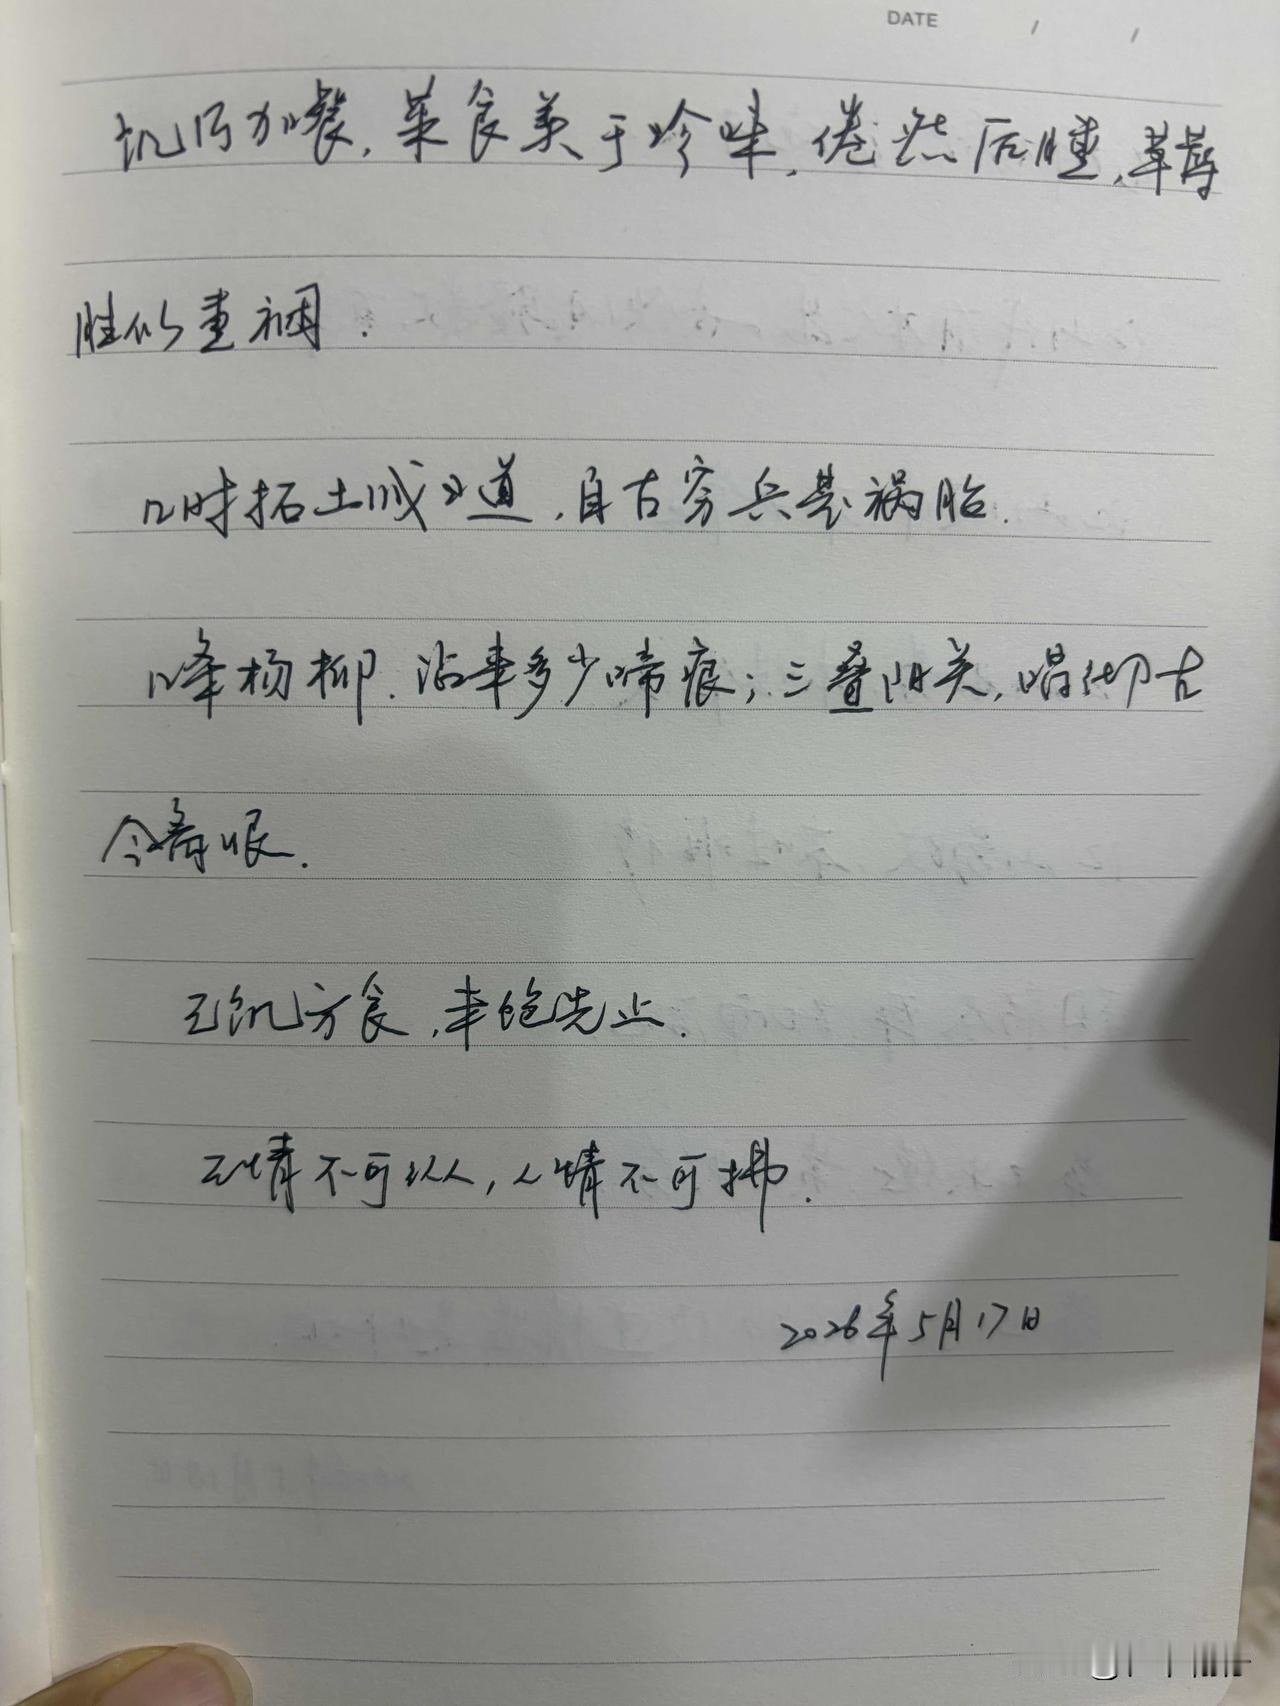 饥乃加餐,菜食美于珍味,倦然后睡,草蓐
胜似重裀.
几时拓土成王道,自古穷兵是祸胎.
几条杨柳,沾来多少啼痕;三叠阳关,唱彻古
今离恨.
已饥方食,未饱先止.
己情不可纵,人情不可拂.
2026年5月17日
DATE / /